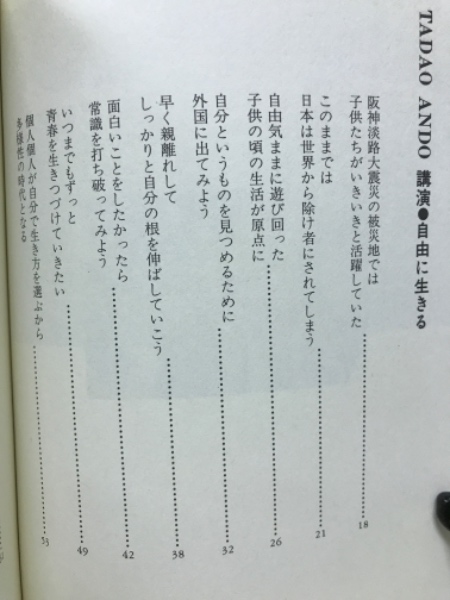 TADAO ANDO 講演●自由に生きる
阪神淡路大震災の被災地では
子供たちがいきいきと活躍していた 18
このままでは
日本は世界から除け者にされてしまう 21
自由気ままに遊び回った
子供の頃の生活が原点に 26
自分というものを見つめるために
外国に出てみよう 32
早く親離れして
しっかりと自分の根を伸ばしていこう 38
面白いことをしたかったら
常識を打ち破ってみよう 42
いつまでもずっと
青春を生きつづけていきたい 49
個人個人が自分で生き方を選ぶから
多様性の時代となる 53